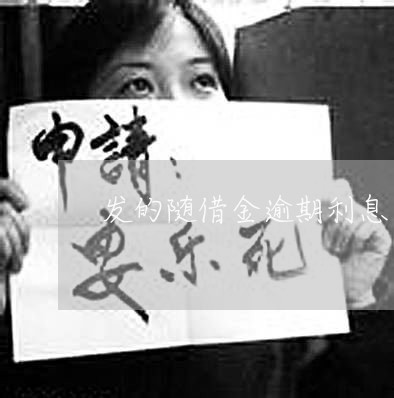 申請：
发的随借金逾期利息
要乐死